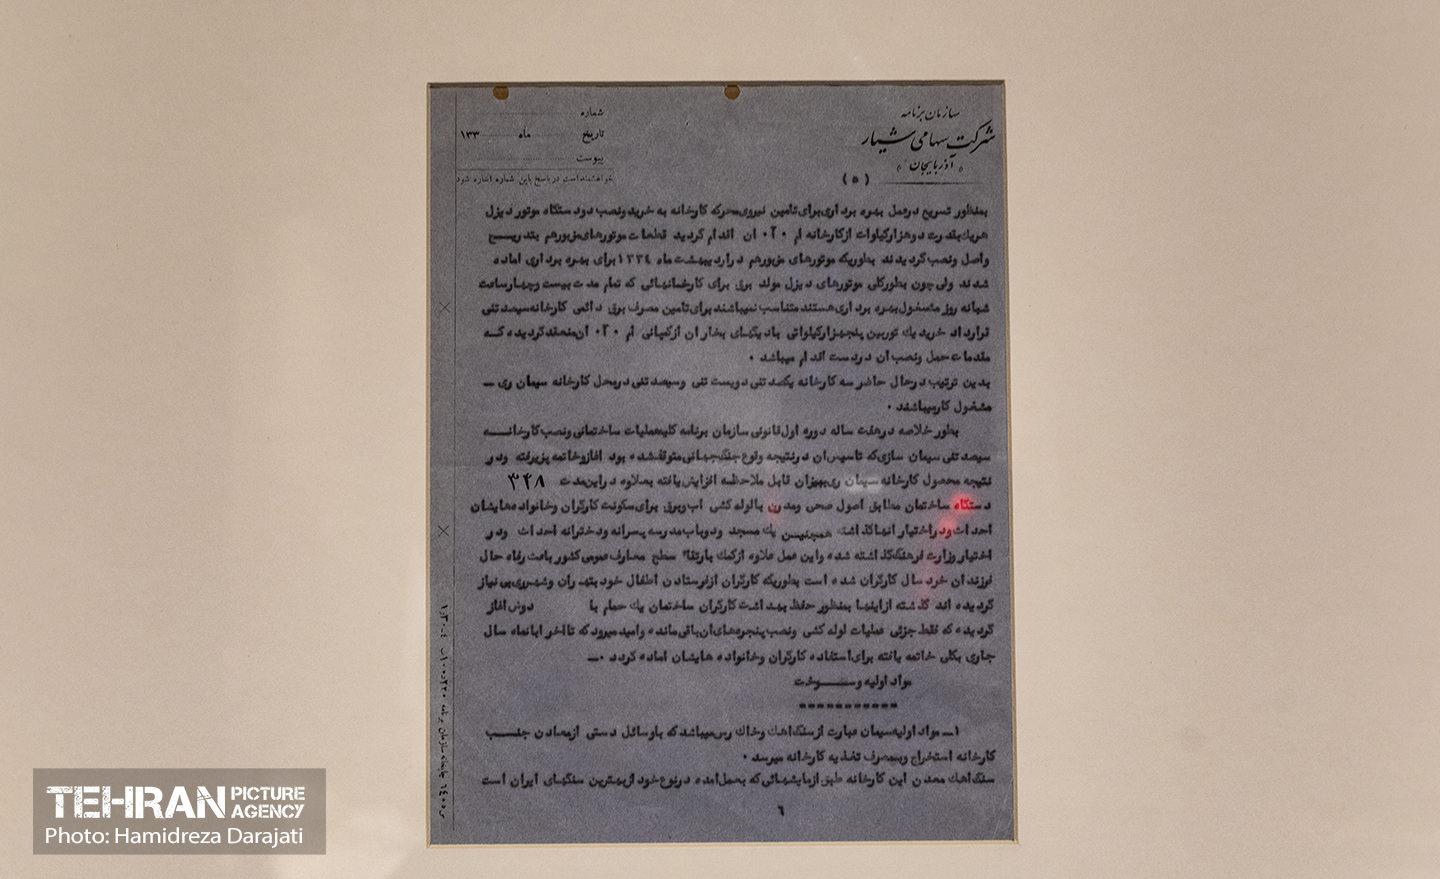 سازمان برنامه
شرکت سهامی شیار
آذربایجان
(۵)
شماره
تاریخ ماه ۱۳۳
پیوست
خواهشمند است در پاسخ باین شماره اشاره شود
بمنظور تسریع درعمل بهره برداری برای تامین نیروی محرکه کارخانه به خرید و نصب دو دستگاه موتور دیزل
هریك بقدرت دوهزار کیلوات از کارخانه ام ۰ آ ۰ ان اقدام گردید قطعات موتورهای مزبورهم بتدریسج
واصل ونصب گردیدند بطوریکه موتورهای مزبورهم در اردیبهشت ماه ۱۳۳٤ برای بهره برداری اماده
شدند ولی چون بطورکلی موتورهای دیزل مولد برق برای کارخانهائی که تمام مدت بیست وچهارساعت
شبانه روز مشغول بهره برداری هستند متناسب نمیباشند برای تامین مصرف برق دائمی کارخانه سیصد تنی
قرارداد خرید یك توربین پنجهزارکیلواتی بادیگهای بخار ان ازکمپانی ام ۰ آ ۰ ان منعقد گردیده کـه
مقدمات حمل ونصب ان دردست اقدام میباشد ۰
بدین ترتیب درحال حاضر سه کارخانه یکصد تنی دویست تنی وسیصد تنی درمحل کارخانه سیمان ری ـ
مشغول کارمیباشند ۰
بطور خلاصه درهفت ساله دوره اول قانونی سازمان برنامه کلیه عملیات ساختمانی ونصب کارخانــه
سیصد تنی سیمان سازی که تاسیس ان درنتیجه وقوع جنگ جهانی متوقف شده بود اغاز وخاتمه پزیرفته ودر
نتیجه محصول کارخانه سیمان ری بمیزان قابل ملاحظه افزایش یافته بعلاوه دراین مدت ۳۴۸
دستگاه ساختمان مطابق اصول صحی ومدرن بالوله کشی اب وبرق برای سکونت کارگران وخانواده هایشان
احداث ودر اختیار انها گذاشته همچنیـن یك مسجد ودوباب مدرسه پسرانه ودخترانه احداث ودر
اختیار وزارت فرهنگ گذاشته شده واین عمل علاوه ازکمك بارتقاء سطح معارف عمومی کشور باعث رفاه حال
فرزندان خردسال کارگران شده است بطوریکه کارگران ازفرستادن اطفال خود بتهران وشهرری بی نیاز
گردیده اند گذشته از اینها بمنظور حفظ بهداشت کارگران ساختمان یك حمام با دوش اغاز
گردیده که فقط جزئی عملیات لوله کشی ونصب پنجره های ان باقی مانده وامید میرود که تا اخر ابانماه سال
جاری بکلی خاتمه یافته برای استفاده کارگران وخانواده هایشان اماده گردد ۰ـ
مواد اولیه وسـوخت
===========
۱ـ مواد اولیه سیمان عبارت ازسنگ اهك وخاك رس میباشد که باوسائل دستی ازمعادن جنـب
کارخانه استخراج وبمصرف تغذیه کارخانه میرسد ۰
سنگ اهك معدن این کارخانه طبق ازمایشهائی که بعمل امده درنوع خود از بهترین سنگهای ایران است
٦
چاپخانه سازمان برنامه
TEHRAN PICTURE AGENCY
Photo: Hamidreza Darajati